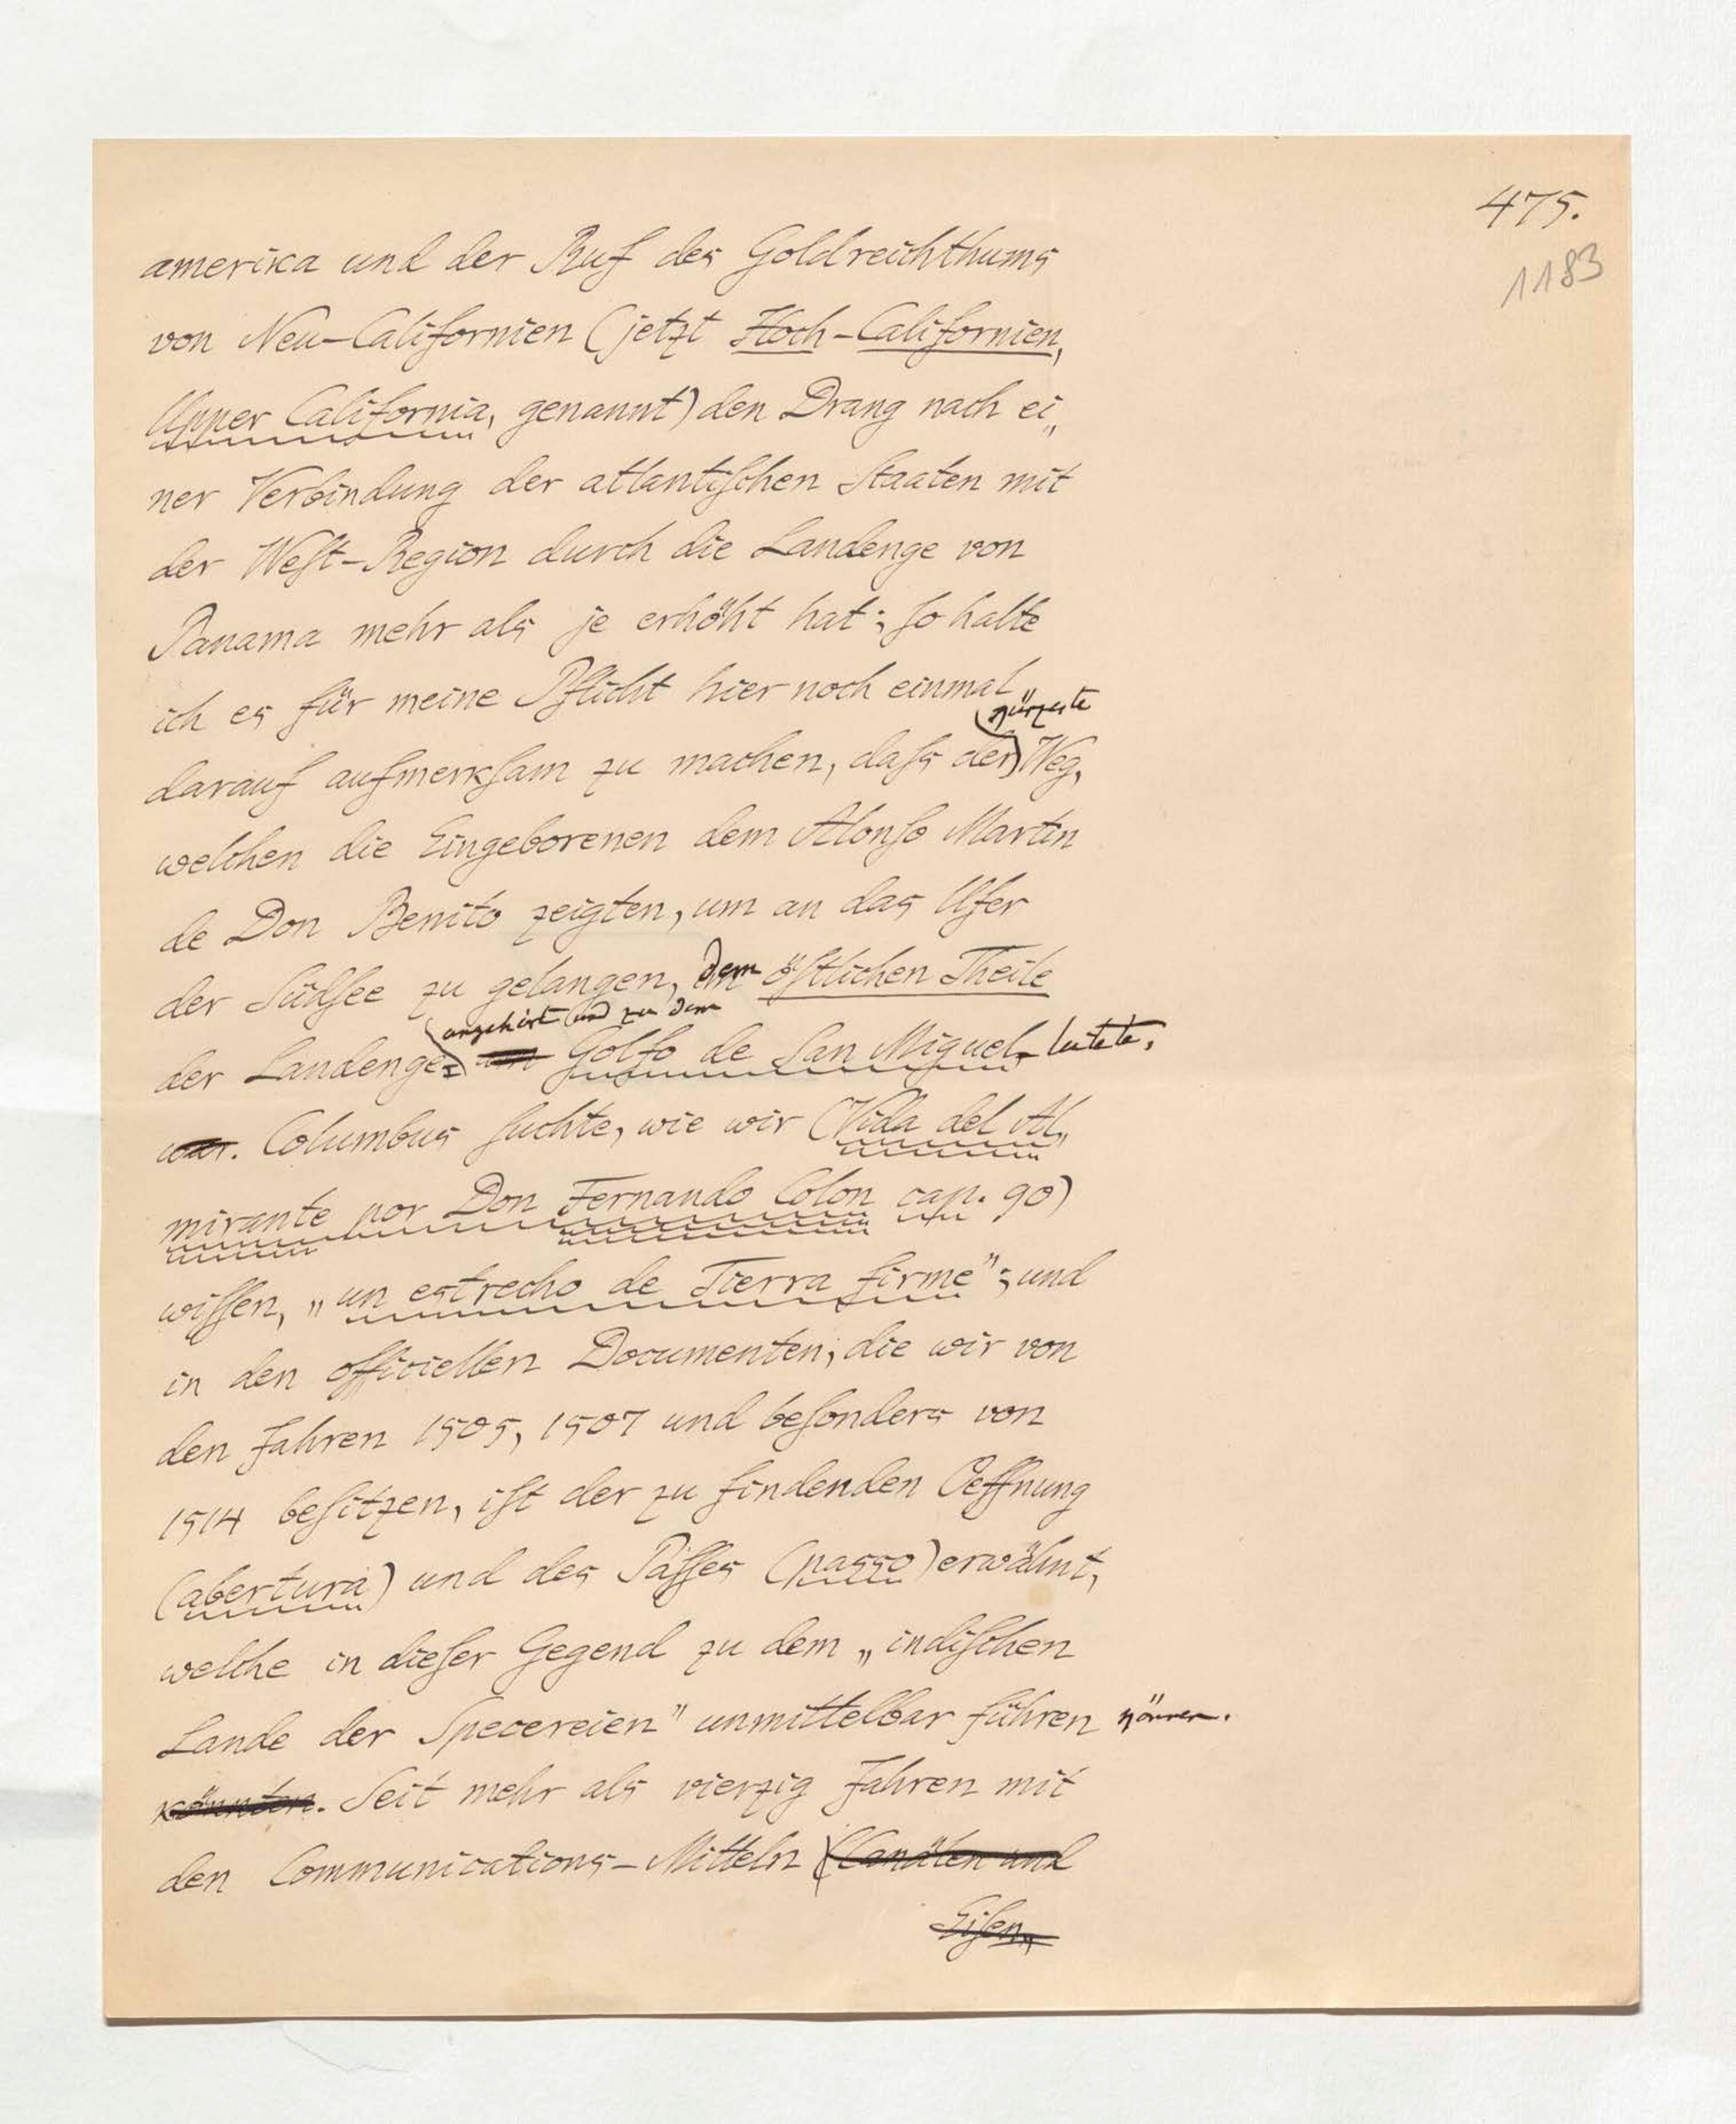 475.
1183
amerika und der Ruf des Goldreichthums
von Neu-Californien (jetzt Hoch-Californien,
Upper California, genannt) den Drang nach ei„
ner Verbindung der atlantiſchen Staaten mit
der Weſt-Region durch die Landenge von
Panama mehr als je erhöht hat; ſo halte
ich es für meine Pflicht hier noch einmal
kürzeste
darauf aufmerkſam zu machen, daſs der Weg,
welchen die Eingeborenen dem Alonſo Martin
de Don Benito zeigten, um an das Ufer
der Südſee zu gelangen, dem öſtlichen Theile
angehört und zu dem
der Landenge Golfo de San Miguel leitete.
war. Columbus ſuchte, wie wir (Vida del Al„
mirante por Don Fernando Colon cap. 90)
wiſſen, „un estrecho de Tierra firme"; und
in den officiellen Documenten, die wir von
den Jahren 1505, 1507 und beſonders von
1514 beſitzen, iſt der zu findenden Oeffnung
(abertura) und des Paſſes (passo) erwähnt,
welche in dieſer Gegend zu dem „indiſchen
Lande der Specereien" unmittelbar führen können.
könnten. Seit mehr als vierzig Jahren mit
den Communications-Mitteln (Canälen und
Eiſen„